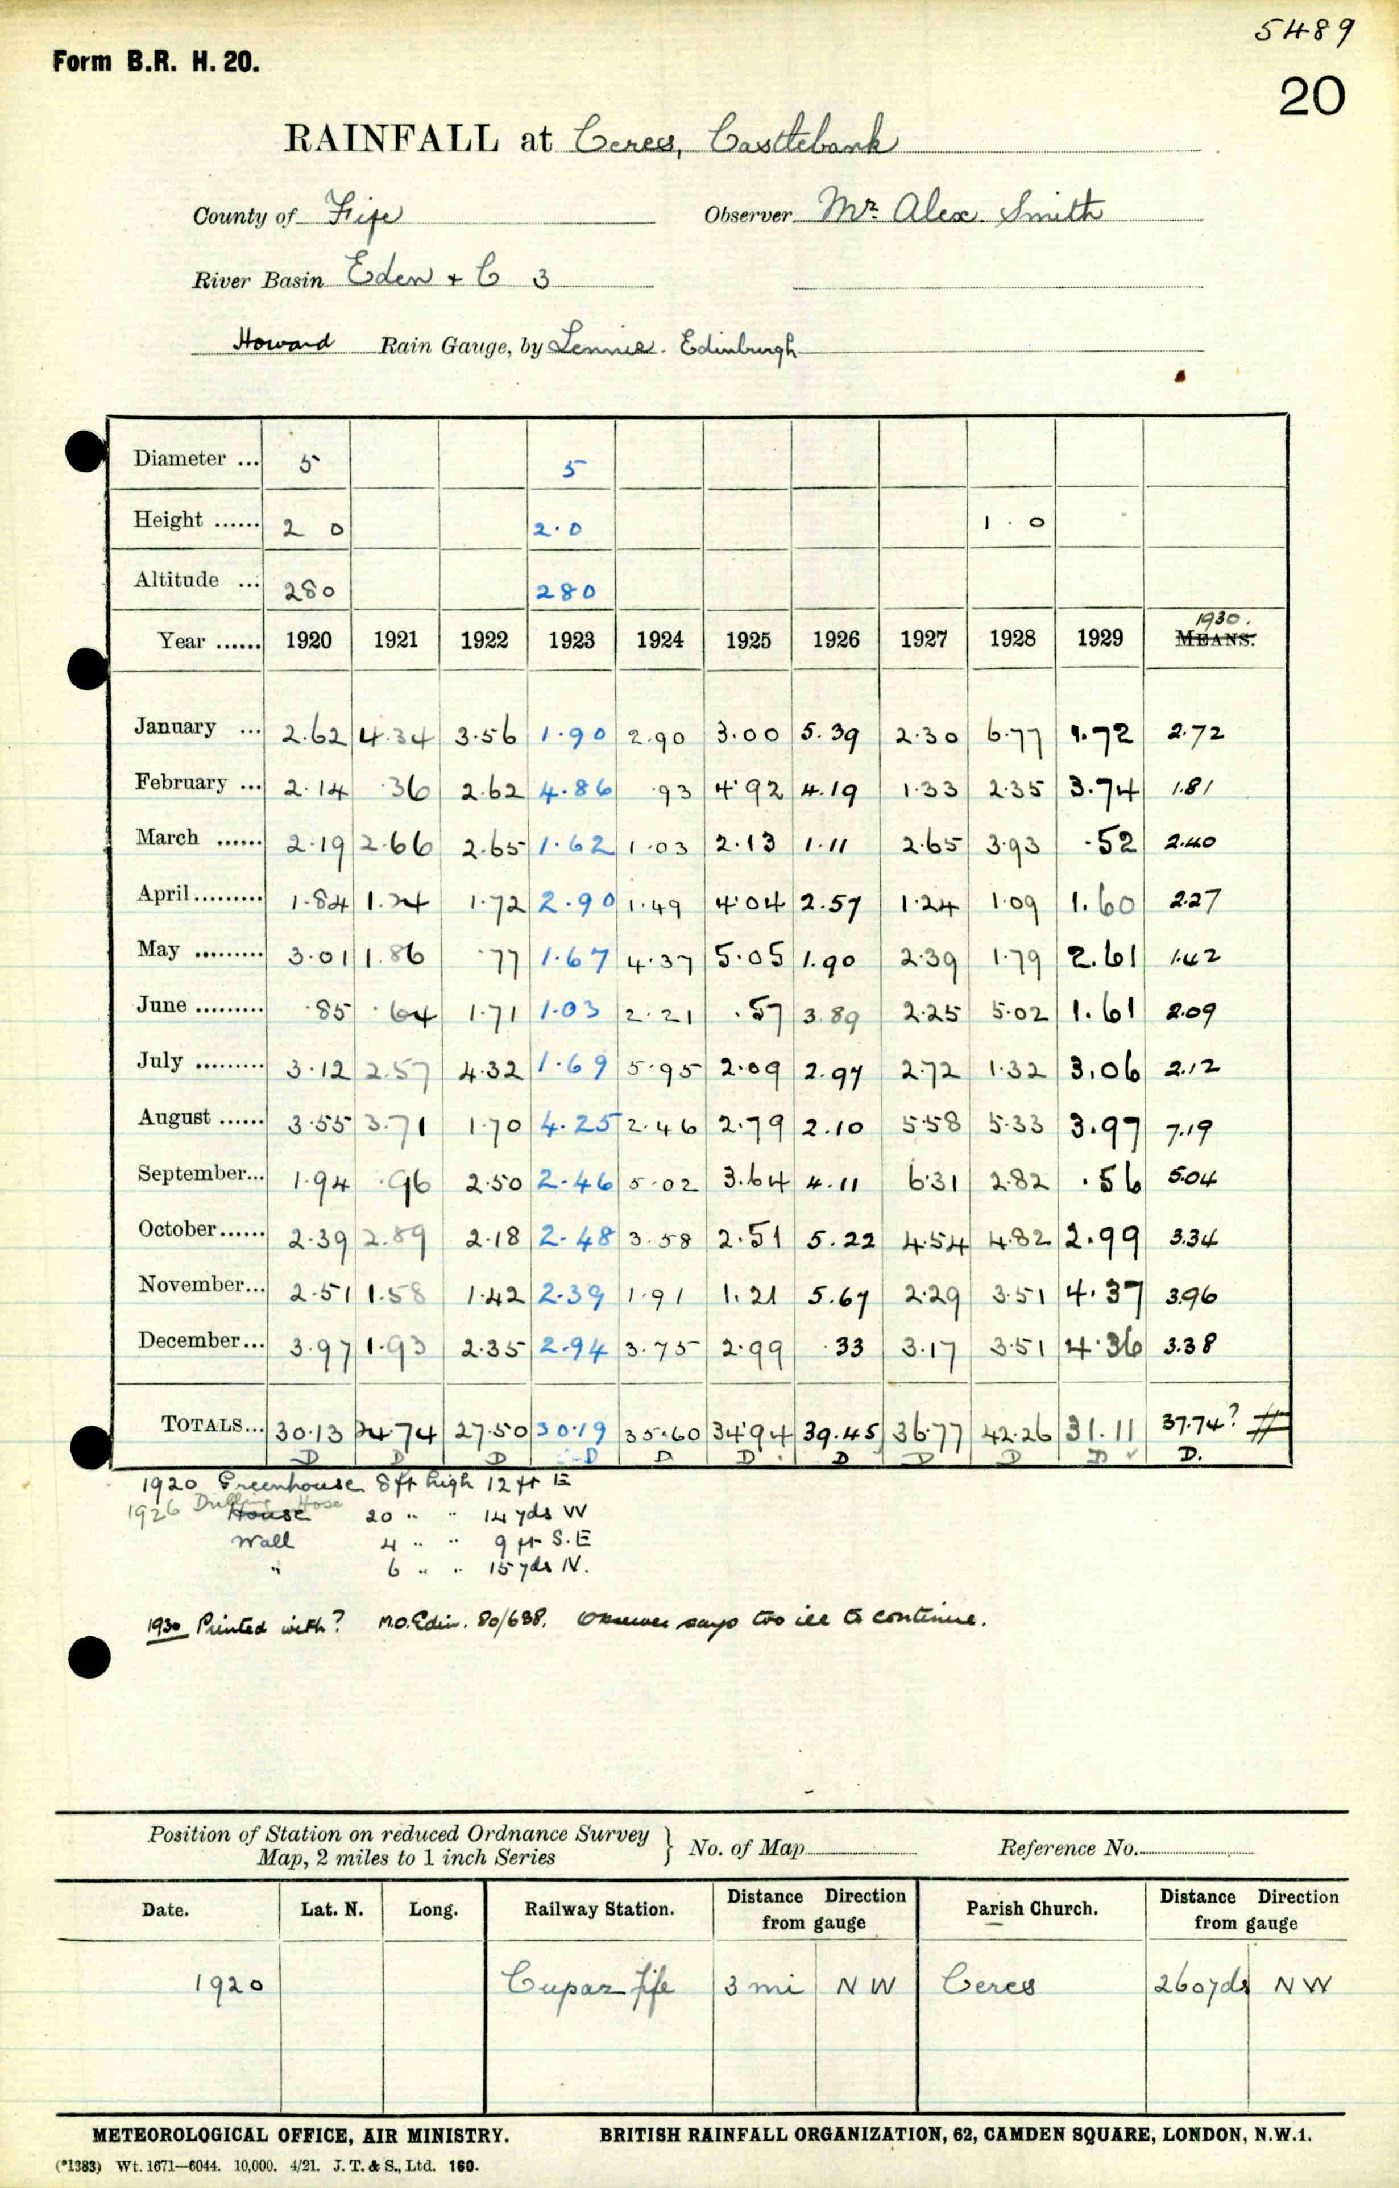 5489
Form B.R. H. 20.
20
RAINFALL at Ceres, Castlebank
County of Fife Observer Mr. Alex. Smith
River Basin Eden + C 3
Howard Rain Gauge, by Lennie. Edinburgh
Diameter ... 5 5
Height ...... 2 0 2.0 1.0
Altitude ... 280 280
1930.
Year ...... 1920 1921 1922 1923 1924 1925 1926 1927 1928 1929 MEANS.
January ... 2.62 4.34 3.56 1.90 2.90 3.00 5.39 2.30 6.77 1.72 2.72
February ... 2.14 .36 2.62 4.86 .93 4.92 4.19 1.33 2.35 3.74 1.81
March ...... 2.19 2.66 2.65 1.62 1.03 2.13 1.11 2.65 3.93 .52 2.40
April ......... 1.84 1.24 1.72 2.90 1.49 4.04 2.57 1.24 1.09 1.60 2.27
May ......... 3.01 1.86 .77 1.67 4.37 5.05 1.90 2.39 1.79 2.61 1.42
June ......... .85 .64 1.71 1.03 2.21 .57 3.89 2.25 5.02 1.61 2.09
July ......... 3.12 2.57 4.32 1.69 5.95 2.09 2.97 2.72 1.32 3.06 2.12
August ...... 3.55 3.71 1.70 4.25 2.46 2.79 2.10 5.58 5.33 3.97 7.19
September... 1.94 .96 2.50 2.46 5.02 3.64 4.11 6.31 2.82 .56 5.04
October ...... 2.39 2.89 2.18 2.48 3.58 2.51 5.22 4.54 4.82 2.99 3.34
November... 2.51 1.58 1.42 2.39 1.91 1.21 5.67 2.29 3.51 4.37 3.96
December... 3.97 1.93 2.35 2.94 3.75 2.99 .33 3.17 3.51 4.36 3.38
TOTALS... 30.13 24.74 27.50 30.19 35.60 34.94 39.45 36.77 42.26 31.11 37.74? #
D D D D D D D D D D ✓ D.
1920 Greenhouse 8 ft high 12 ft E
1926 House 20 " " 14 yds W
Wall 4 " " 9 ft S.E
" 6 " " 15 yds N.
1930 Printed with? M.O. Edin. 80/638. Observer says too ill to continue.
Position of Station on reduced Ordnance Survey
Map, 2 miles to 1 inch Series } No. of Map Reference No.
Date. Lat. N. Long. Railway Station. Distance Direction from gauge Parish Church. Distance Direction from gauge
1920 Cupar Fife 3 mi N W Ceres 260 yds N W
METEOROLOGICAL OFFICE, AIR MINISTRY. BRITISH RAINFALL ORGANIZATION, 62, CAMDEN SQUARE, LONDON, N.W.1.
(*1383) Wt. 1671—6044. 10,000. 4/21. J. T. & S., Ltd. 160.